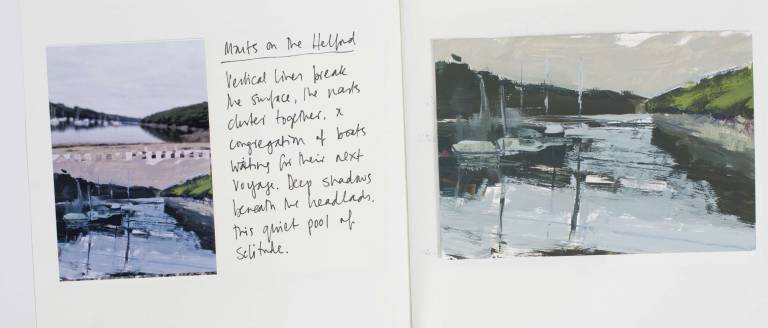 Masts on the Helford
Vertical lines break
the surface, the masts
cluster together, a
congregation of boats
waiting for their next
voyage. Deep shadows
beneath the headlands.
This quiet pool of
Solitude.